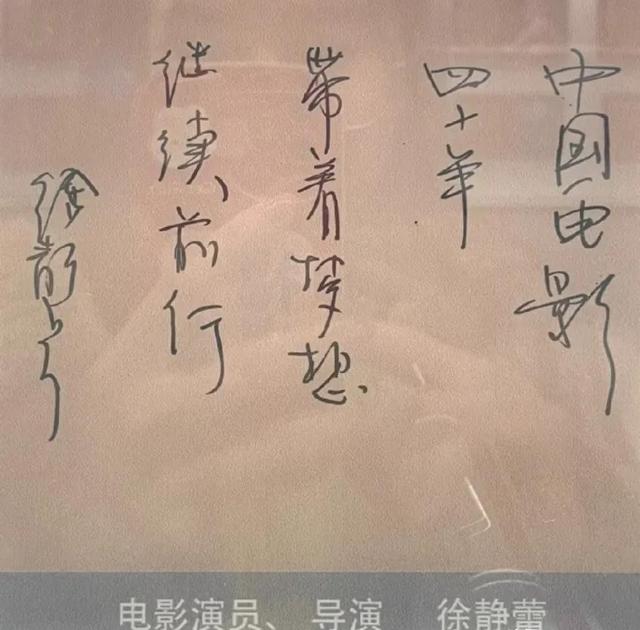 中国电影
四十年
带着梦想
继续前行
电影演员、 导演 徐静蕾